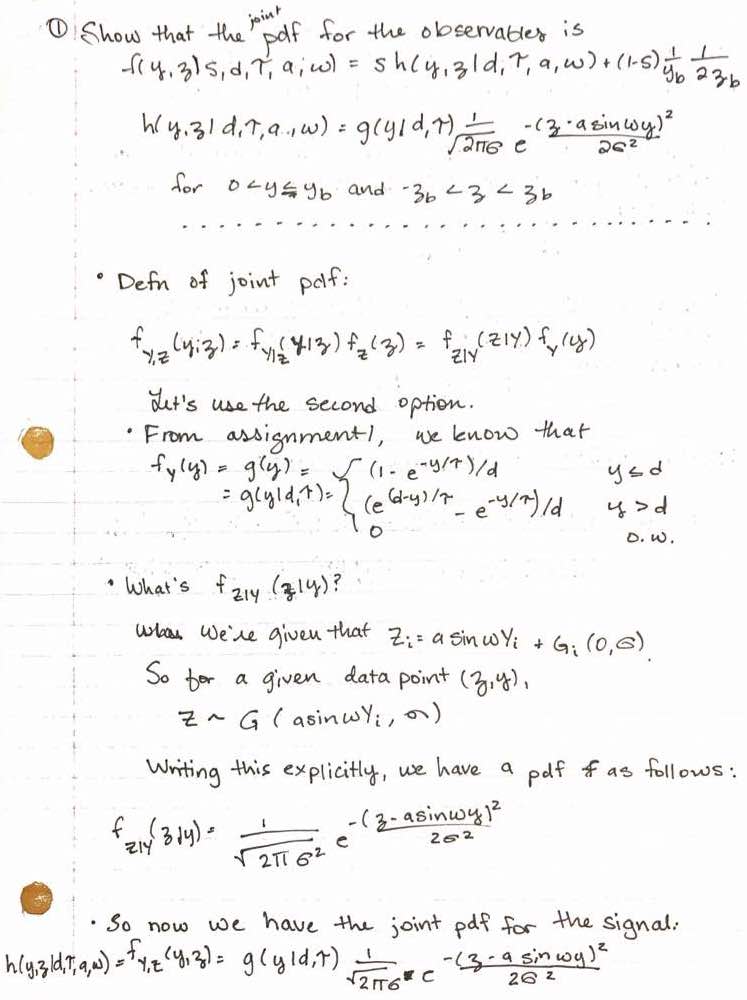 ① Show that the joint pdf for the observables is
f(y,z|s,d,τ,a,ω) = s h(y,z|d,τ,a,ω) + (1-s) 1/y_b 1/2z_b
h(y,z|d,τ,a,ω) = g(y|d,τ) 1/√2πσ e^-(z-a sin ωy)²/2σ²
for 0 < y ≤ y_b and -z_b < z < z_b
• Defn of joint pdf:
f_Y,Z(y,z) = f_Y|Z(y|z) f_Z(z) = f_Z|Y(z|y) f_Y(y)
Let's use the second option.
• From assignment 1, we know that
f_Y(y) = g(y) = { (1 - e^-y/τ)/d y ≤ d
= g(y|d,τ) = { (e^(d-y)/τ - e^-y/τ)/d y > d
0 o.w.
• What's f_Z|Y(z|y)?
We're given that Z_i = a sin ωY_i + G_i(0,σ).
So for a given data point (z,y),
Z ~ G(a sin ωY_i, σ)
Writing this explicitly, we have a pdf f as follows:
f_Z|Y(z|y) = 1/√2πσ² e^-(z-a sin ωy)²/2σ²
• So now we have the joint pdf for the signal.
h(y,z|d,τ,a,ω) = f_Y,Z(y,z) = g(y|d,τ) 1/√2πσ e^-(z-a sin ωy)²/2σ²